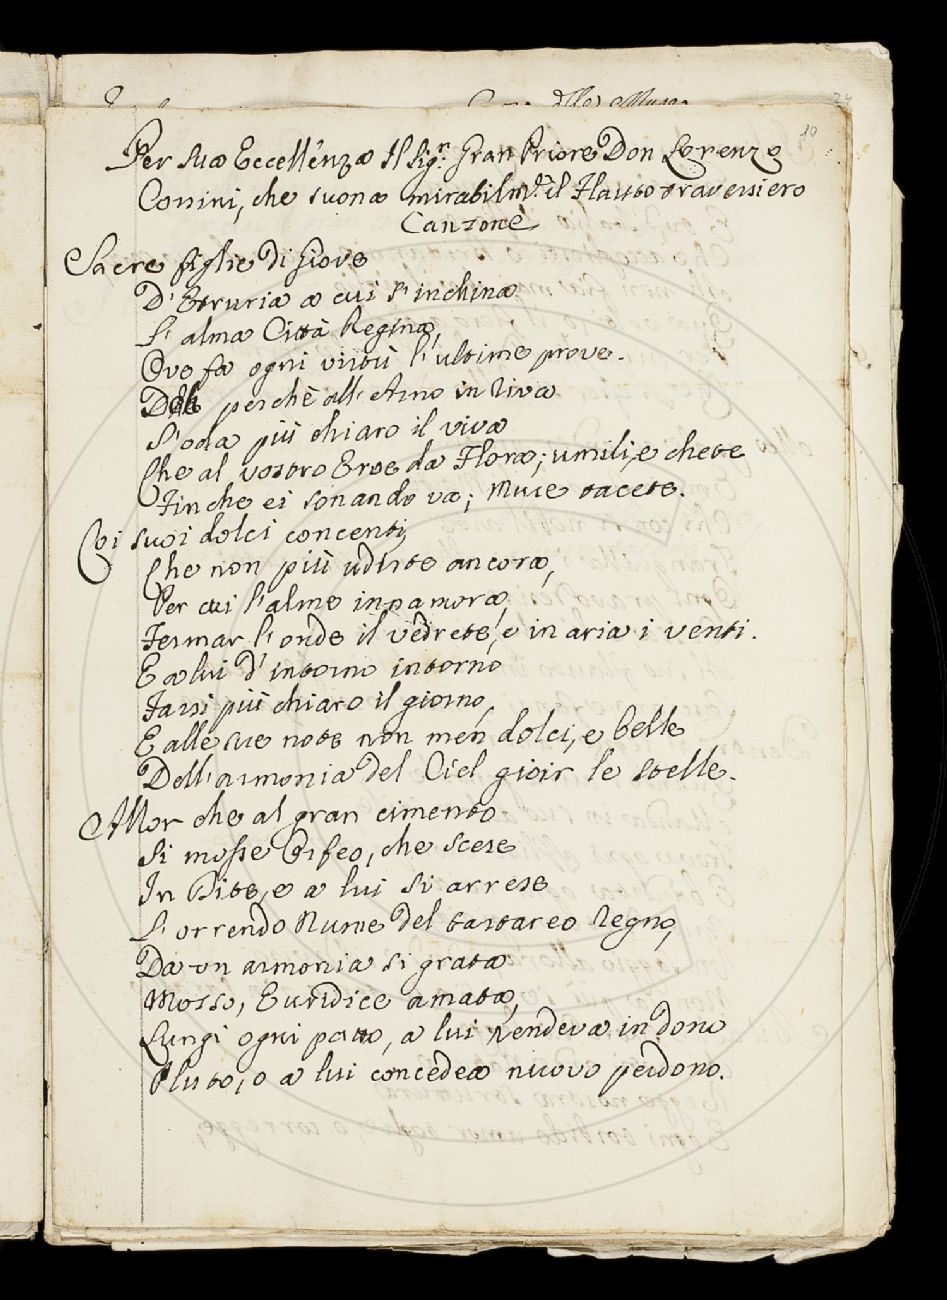 10
Per sua Eccellenza Il Sig.r Gran Priore Don Lorenzo
Corsini, che suona mirabilm.te il Flauto traversiero
Canzone
Sacre figlie di Giove
D' Etruria a cui s' inchina
L' alma Città Regina,
Ove fa ogni virtù l' ultime prove.
Deh perchè all' Arno in riva
S' oda più chiaro il viva
Che al vostro Eroe da Flora; umili, e chete
Finche ei sonando va; Muse tacete.
Coi suoi dolci concenti,
Che non più udiste ancora,
Per cui l' alme innamora,
Fermar l' onde il vedrete, e in aria i venti.
E a lui d' intorno intorno
Farsi più chiaro il giorno,
E alle sue note non men dolci, e belle
Dell' armonia del Ciel gioir le stelle.
Allor che al gran cimento
Si mosse Orfeo, che scese
In Dite, e a lui si arrese
L' orrendo Nume del tartareo Regno,
Da un armonia si grata
Mosso, Euridice amata,
Lungi ogni patto, a lui rendeva in dono
Pluto, o a lui concedea nuovo perdono.